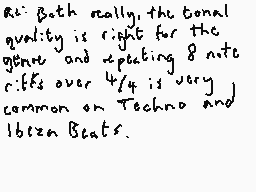 Re: Both really, the tonal
quality is right for the
genre and repeating 8 note
riffs over 4/4 is very
common on Techno and
Ibiza Beats.